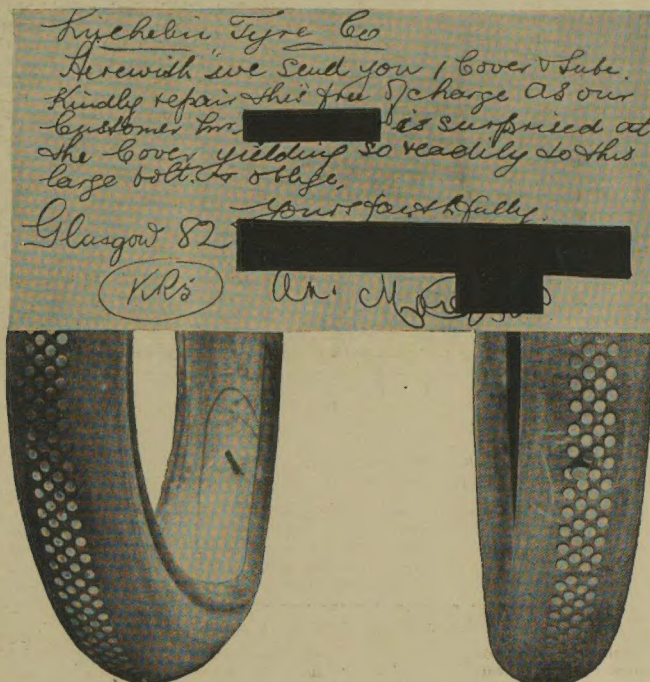 Michelin Tyre Co
Herewith we send you 1 Cover & Tube.
Kindly repair this free of charge as our
Customer Mr. is surprised at
the Cover yielding so readily to this
large bolt. & oblige,
Yours faithfully.
Glasgow 82
KRS